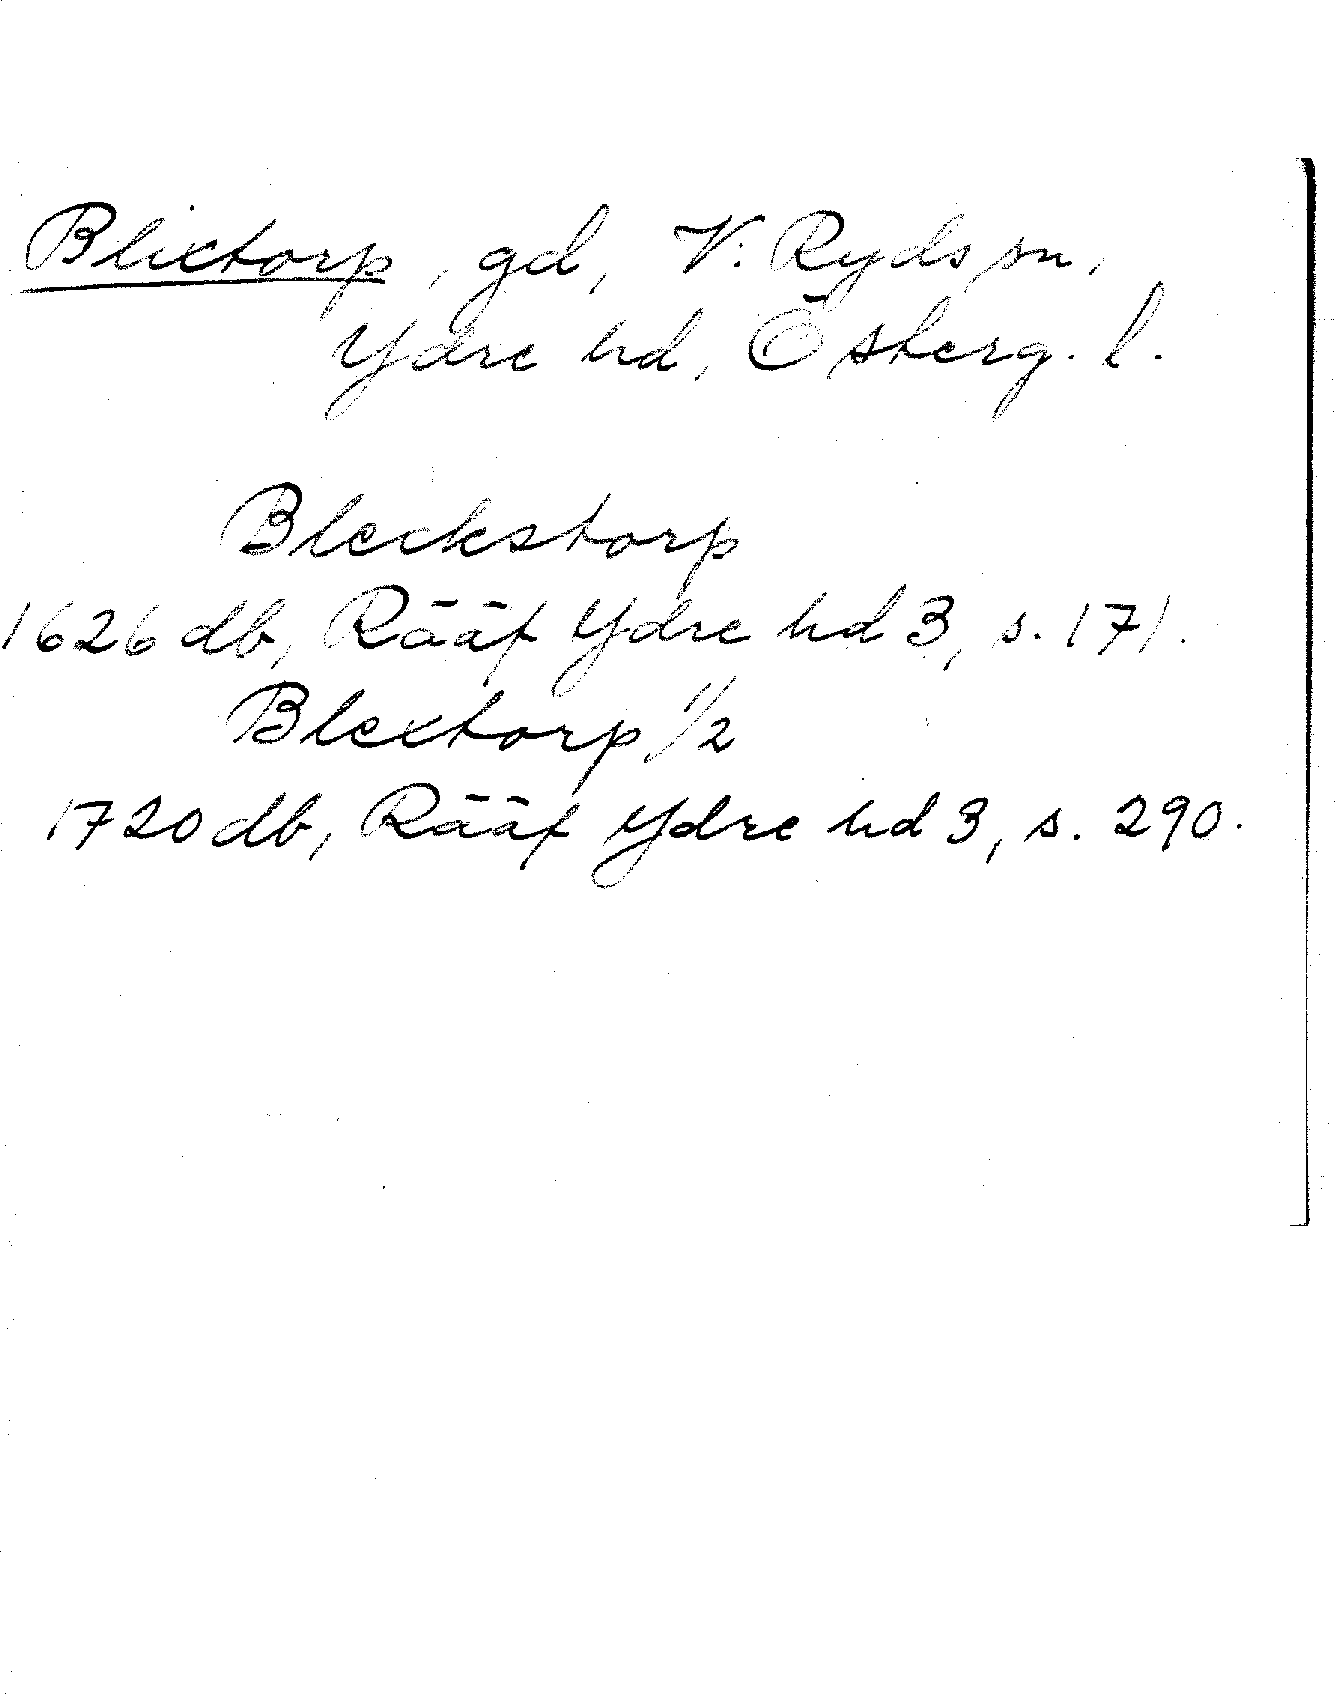 Blixtorp, gd, V. Ryds sn,
Ydre hd, Österg. l.
Bleckstorp
1626 db, Rääf Ydre hd 3, s. 171.
Blextorp 1/2
1720 db, Rääf Ydre hd 3, s. 290.